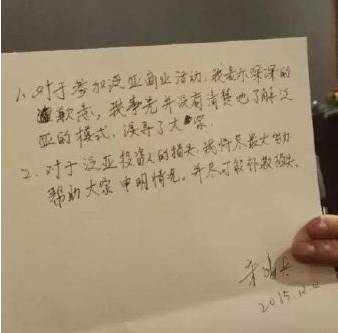 1. 对于参加泛亚商业活动,我表示深深的
歉意,我事先并没有清楚地了解泛
亚的模式,误导了大家.
2. 对于泛亚投资人的损失,我将尽最大努力
帮助大家申明情况.并尽可能补救损失.
2015.12.